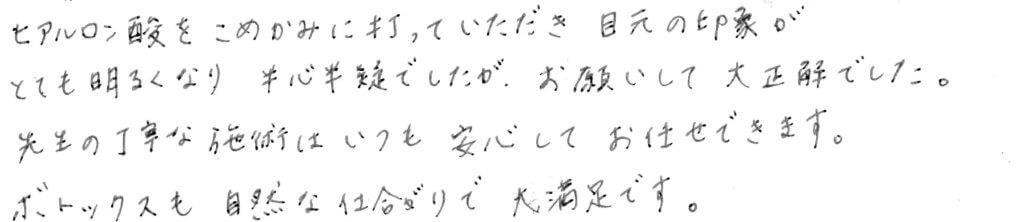 ヒアルロン酸をこめかみに打っていただき 目元の印象が
とても明るくなり 半心半疑でしたが、お願いして 大正解でした。
先生の丁寧な施術はいつも 安心して お任せできます。
ボトックスも 自然な仕合がりで 大満足です。